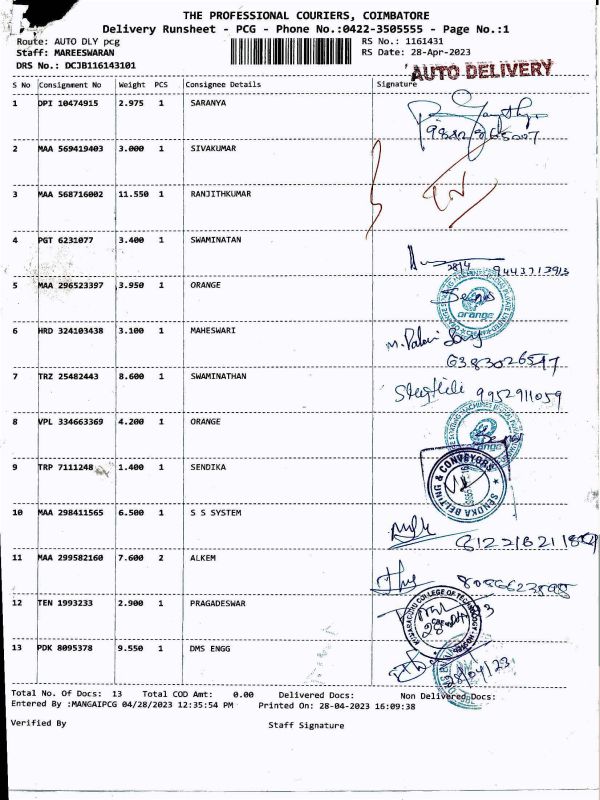 THE PROFESSIONAL COURIERS, COIMBATORE
Delivery Runsheet - PCG - Phone No.:0422-3505555 - Page No.:1
Route: AUTO DLY pcg RS No.: 1161431
Staff: MAREESWARAN RS Date: 28-Apr-2023
DRS No.: DCJB116143101 AUTO DELIVERY
S No Consignment No Weight PCS Consignee Details Signature
1 DPI 10474915 2.975 1 SARANYA
2 MAA 569419403 3.000 1 SIVAKUMAR
3 MAA 568716002 11.550 1 RANJITHKUMAR
4 PGT 6231077 3.400 1 SWAMINATAN
28/4
5 MAA 296523397 3.950 1 ORANGE
orange
6 HRD 324103438 3.100 1 MAHESWARI
6383026547
7 TRZ 25482443 8.600 1 SWAMINATHAN
9952911059
8 VPL 334663369 4.200 1 ORANGE
9 TRP 7111248 1.400 1 SENDIKA
SENDKA BELTING & CONVEYORS
10 MAA 298411565 6.500 1 S S SYSTEM
11 MAA 299582160 7.600 2 ALKEM
12 TEN 1993233 2.900 1 PRAGADESWAR
COLLEGE OF TECHNOLOGY
13 PDK 8095378 9.550 1 DMS ENGG
28/04/23
Total No. Of Docs: 13 Total COD Amt: 0.00 Delivered Docs: Non Delivered Docs:
Entered By :MANGAIPCG 04/28/2023 12:35:54 PM Printed On: 28-04-2023 16:09:38
Verified By Staff Signature